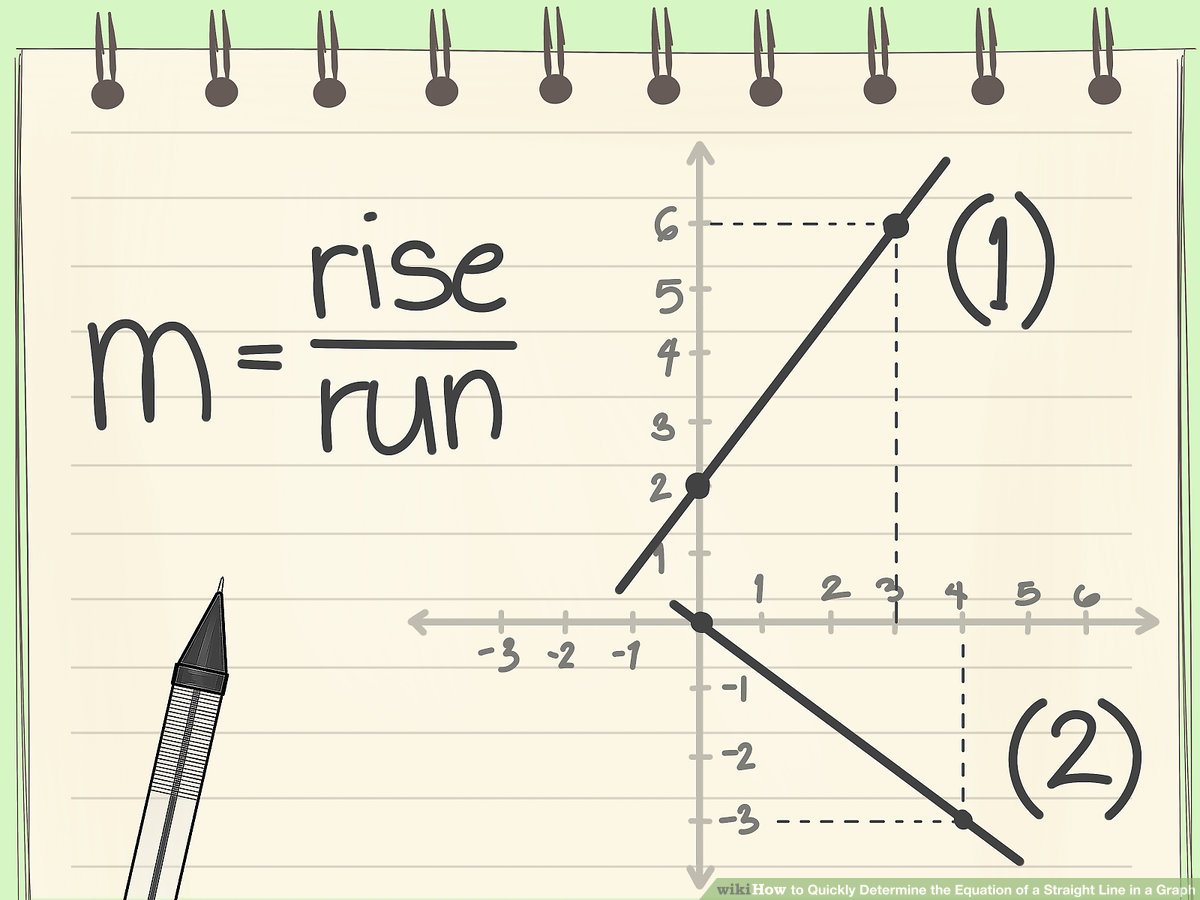 m = rise
run
(1)
6
5
4
3
2
1
1 2 3 4 5 6
-3 -2 -1
-1
-2
-3
(2)
wikiHow to Quickly Determine the Equation of a Straight Line in a Graph